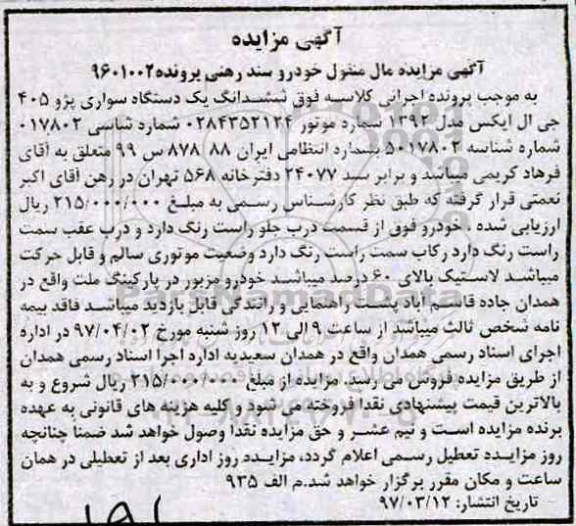 آگهی مزایده
آگهی مزایده مال منقول خودرو سند رهنی پرونده ۹۶۰۱۰۰۲
به موجب پرونده اجرائی کلاسه فوق ششدانگ یک دستگاه سواری پژو ۴۰۵
جی ال ایکس مدل ۱۳۹۲ شماره موتور ۰۲۸۴۳۵۲۱۲۴ شماره شاسی ۰۱۷۸۰۲
شماره شناسه ۵۰۱۷۸۰۲ بشماره انتظامی ایران ۸۸ ۸۷۸ س ۹۹ متعلق به آقای
فرهاد کریمی میباشد و برابر سند ۲۴۰۷۷ دفترخانه ۵۶۸ تهران در رهن آقای اکبر
نعمتی قرار گرفته که طبق نظر کارشناس رسمی به مبلغ ۲۱۵/۰۰۰/۰۰۰ ریال
ارزیابی شده . خودرو فوق از قسمت درب جلو راست رنگ دارد و درب عقب سمت
راست رنگ دارد رکاب سمت راست رنگ دارد وضعیت موتوری سالم و قابل حرکت
میباشد لاستیک بالای ۶۰ درصد میباشد خودرو مزبور در پارکینگ ملت واقع در
همدان جاده قاسم آباد پشت راهنمایی و رانندگی قابل بازدید میباشد فاقد بیمه
نامه شخص ثالث میباشد از ساعت ۹ الی ۱۲ روز شنبه مورخ ۹۷/۰۴/۰۲ در اداره
اجرای اسناد رسمی همدان واقع در همدان سعیدیه اداره اجرا اسناد رسمی همدان
از طریق مزایده فروش می رسد. مزایده از مبلغ ۲۱۵/۰۰۰/۰۰۰ ریال شروع و به
بالاترین قیمت پیشنهادی نقدا فروخته می شود و کلیه هزینه های قانونی به عهده
برنده مزایده است و نیم عشر و حق مزایده نقدا وصول خواهد شد ضمنا چنانچه
روز مزایده تعطیل رسمی اعلام گردد، مزایده روز اداری بعد از تعطیلی در همان
ساعت و مکان مقرر برگزار خواهد شد.م الف ۹۳۵
تاریخ انتشار: ۹۷/۰۳/۱۲